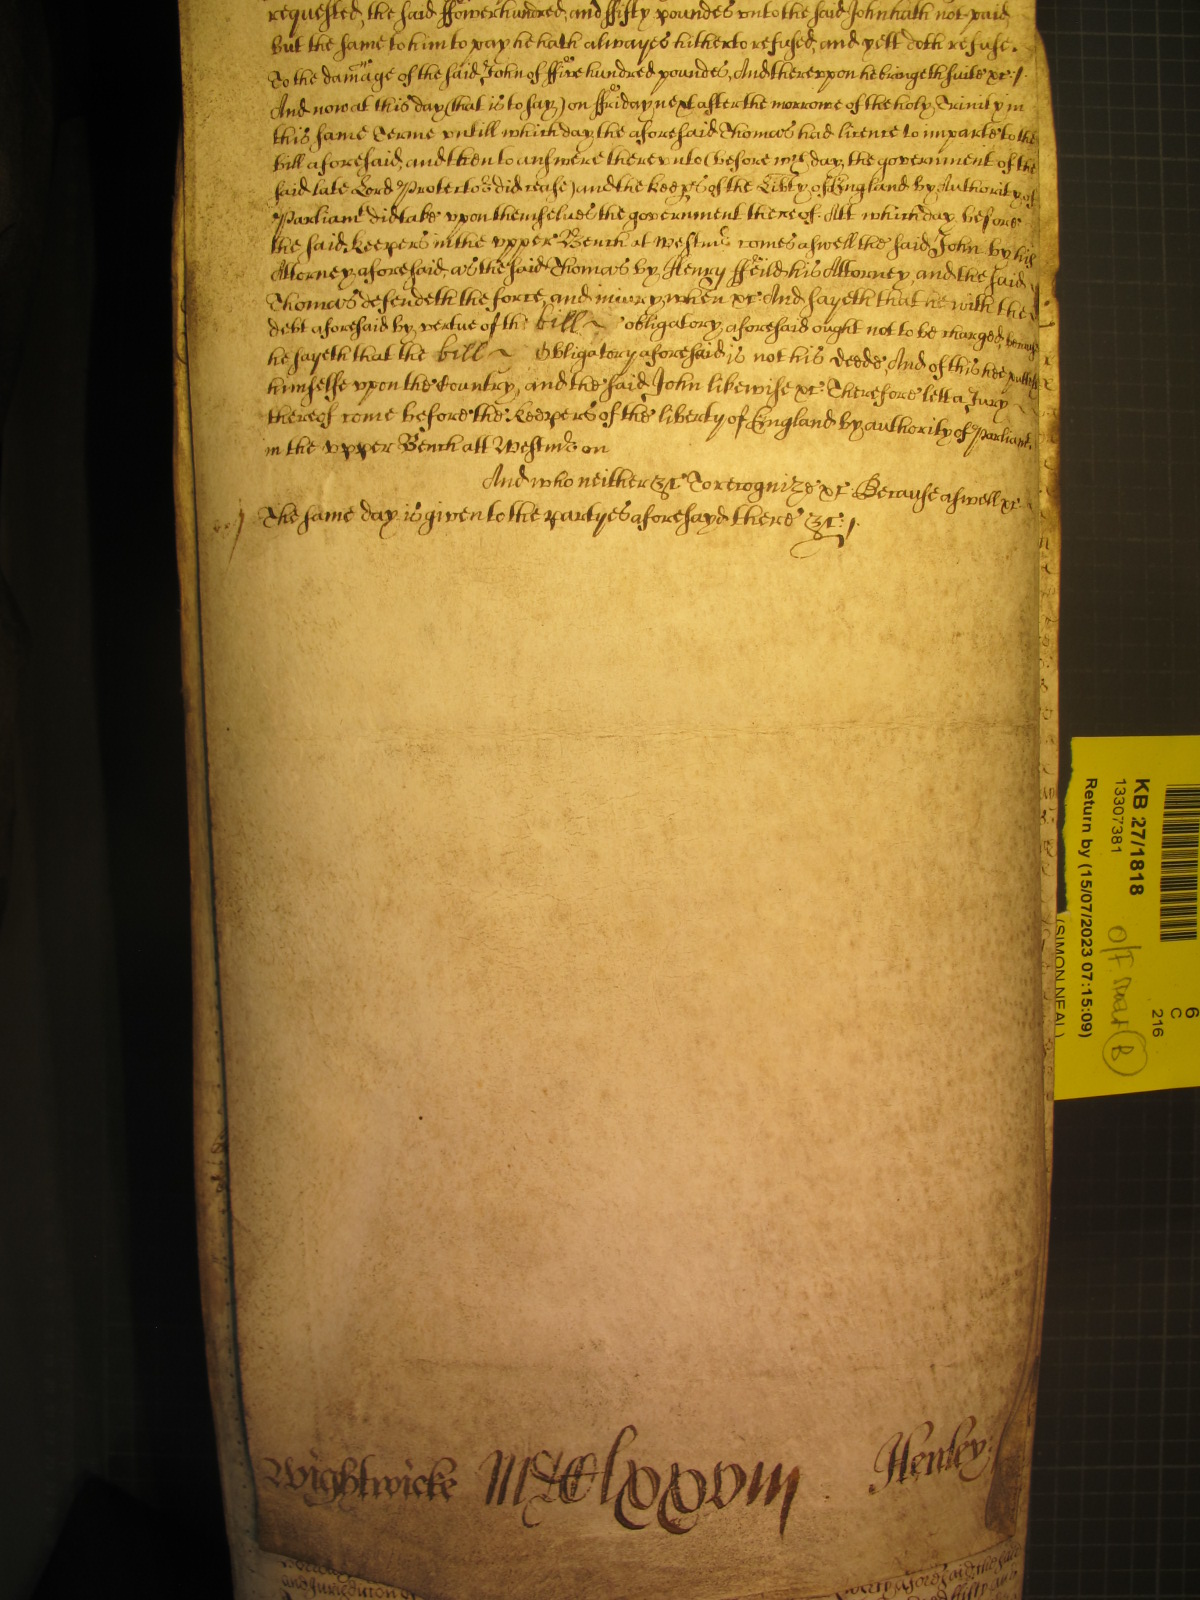 requested, the said ffower hundred, and ffifty poundes vnto the said John hath not paid
But the same to him to pay he hath alwayes hitherto refused, and yett doth refuse.
To the damage of the said John of ffive hundred poundes, And therevppon he bringeth suite xc: /.
And now at this day (that is to say) on ffriday next after the morrowe of the holy Trinity in
this same Terme vntill which day the aforesaid Thomas had licence to imparle to the
bill aforesaid, and then to answere therevnto (before wch day, the government of the
said late Lord Protector did cease) and the keeprs of the Libty of England by Authority of
Parliamt did take vppon themselues the government thereof. Att which day, before
the said keepers in the vpper Bench at Westmr comes aswell the said John by his
Attorney aforesaid, as the said Thomas by Henry ffeild his Attorney, and the said
Thomas defendeth the force, and iniury, when xc. And sayeth that he with the
debt aforesaid by vertue of the bill ~ obligatory aforesaid ought not to be charged, because
he sayeth that the bill ~ Obligatory aforesaid is not his deede, And of this hee putteth
himselfe vpon the Country, and the said John likewise xc. Therefore lett a Jury
thereof come before the keepers of the liberty of England by authority of Parliamt.
in the vpper Bench att Westmr on
And who neither &c To recognize xc. Because aswell xc
The same day is given to the partyes aforesayd there &c: /.
Wightwicke MCClxxxviij Henley
KB 27/1818
13307381
Return by (15/07/2023 07:15:09)
(SIMON NEAL)
6
C
216
B